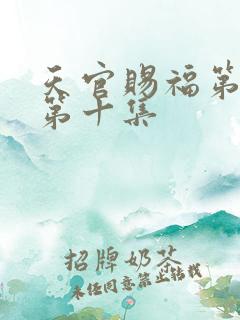 天官赐福第
第十集
招牌奶茶
未经同意禁止转载